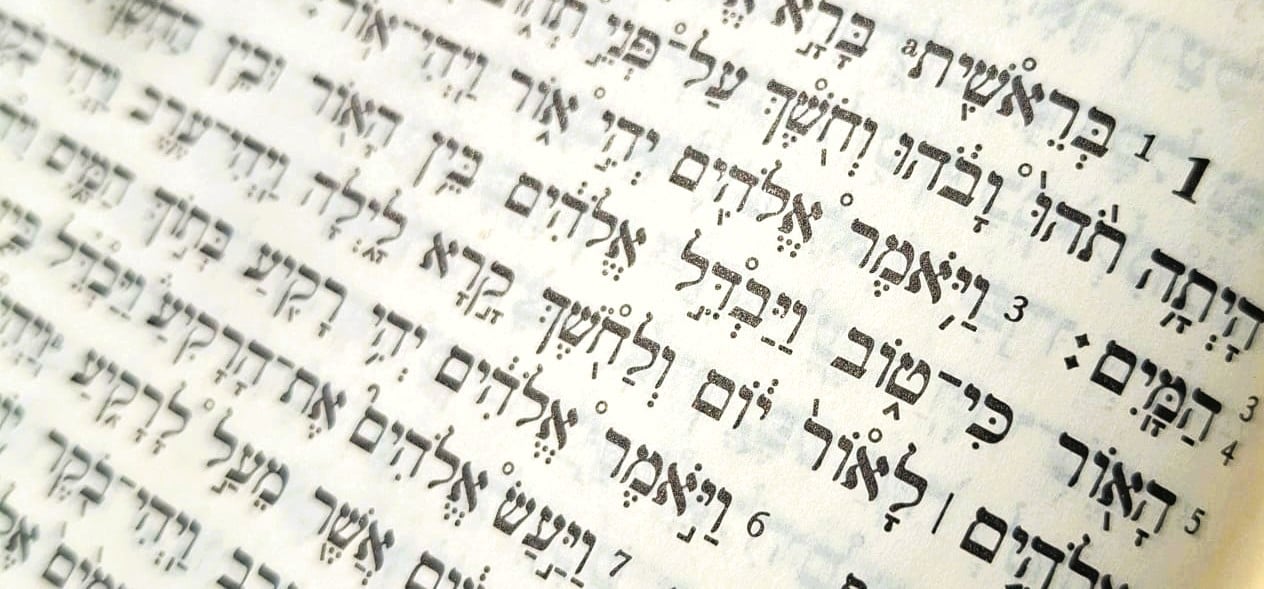 1 1 בְּרֵאשִׁ֖ית a בָּרָ֣א
הָיְתָ֥ה תֹ֙הוּ֙ וָבֹ֔הוּ וְחֹ֖שֶׁךְ עַל־פְּנֵ֣י
3 הַמָּֽיִם׃ 3 וַיֹּ֥אמֶר אֱלֹהִ֖ים יְהִ֣י א֑וֹר וַֽיְהִי־אֽוֹר
4 5 הָא֖וֹר כִּי־ט֑וֹב וַיַּבְדֵּ֣ל אֱלֹהִ֔ים בֵּ֥ין הָא֖וֹר וּבֵ֥ין הַחֹֽשֶׁךְ
אֱלֹהִ֤ים ׀ לָאוֹר֙ י֔וֹם וְלַחֹ֖שֶׁךְ קָ֣רָא לָ֑יְלָה וַֽיְהִי־עֶ֥רֶב
6 וַיֹּ֣אמֶר אֱלֹהִ֔ים יְהִ֥י רָקִ֖יעַ בְּת֣וֹךְ הַמָּ֑יִם
7 וַיַּ֣עַשׂ אֱלֹהִים֮ אֶת־הָרָקִיעַ֒ וַיַּבְדֵּ֗ל
אֲשֶׁ֖ר מֵעַ֣ל לָרָקִ֑יעַ
וַֽיְהִי־בֹ֖קֶר